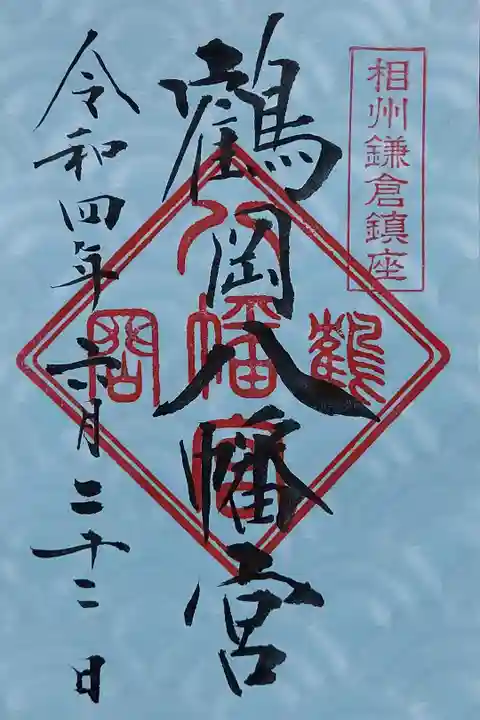 相州鎌倉鎮座
鶴岡八幡宮
鶴岡
八幡宮
令和四年六月二十二日